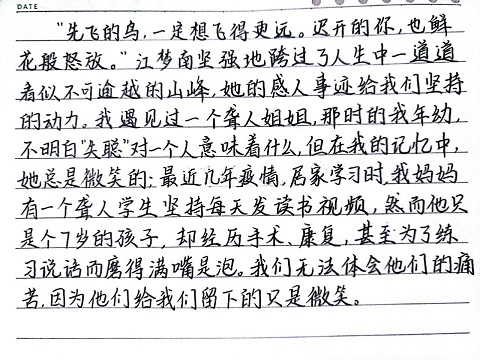 DATE
“先飞的鸟,一定想飞得更远。迟开的你,也鲜
花般怒放。”江梦南坚强地跨过了人生中一道道
看似不可逾越的山峰,她的感人事迹给我们坚持
的动力。我遇见过一个聋人姐姐,那时的我年幼,
不明白“失聪”对一个人意味着什么,但在我的记忆中,
她总是微笑的;最近几年疫情,居家学习时,我妈妈
有一个聋人学生坚持每天发读书视频,然而他只
是个7岁的孩子,却经历手术、康复,甚至为了练
习说话而磨得满嘴是泡。我们无法体会他们的痛
苦,因为他们给我们留下的只是微笑。